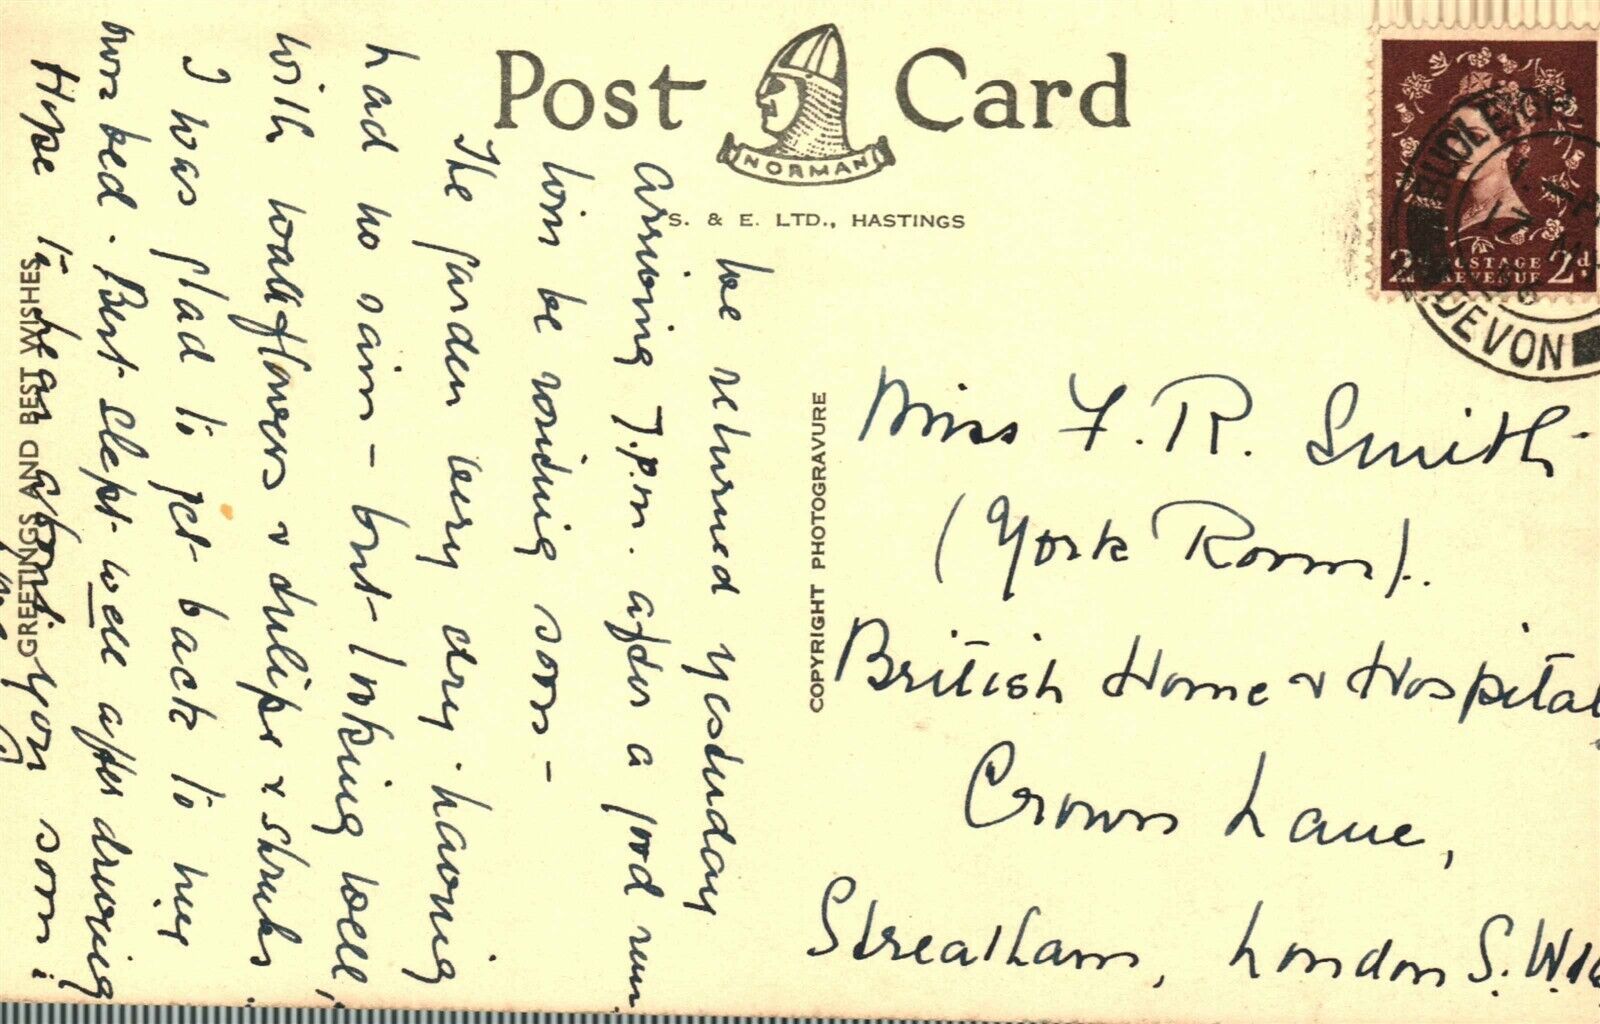 Post Card
NORMAN
S. & E. LTD., HASTINGS
we returned yesterday
arriving 7.p.m. after a good run
Will be writing soon –
The garden very dry. having
had no rain – but looking well,
with wallflowers & tulips & shrubs.
I was glad to get back to my
own bed. Bert slept well after driving
Hope to hear about you soon.
GREETINGS AND BEST WISHES
COPYRIGHT PHOTOGRAVURE
2d POSTAGE REVENUE 2d
BUDLEIGH
DEVON
Miss F. R. Smith
(York Room).
British Home & Hospital
Crown Lane,
Streatham, London S.W.16